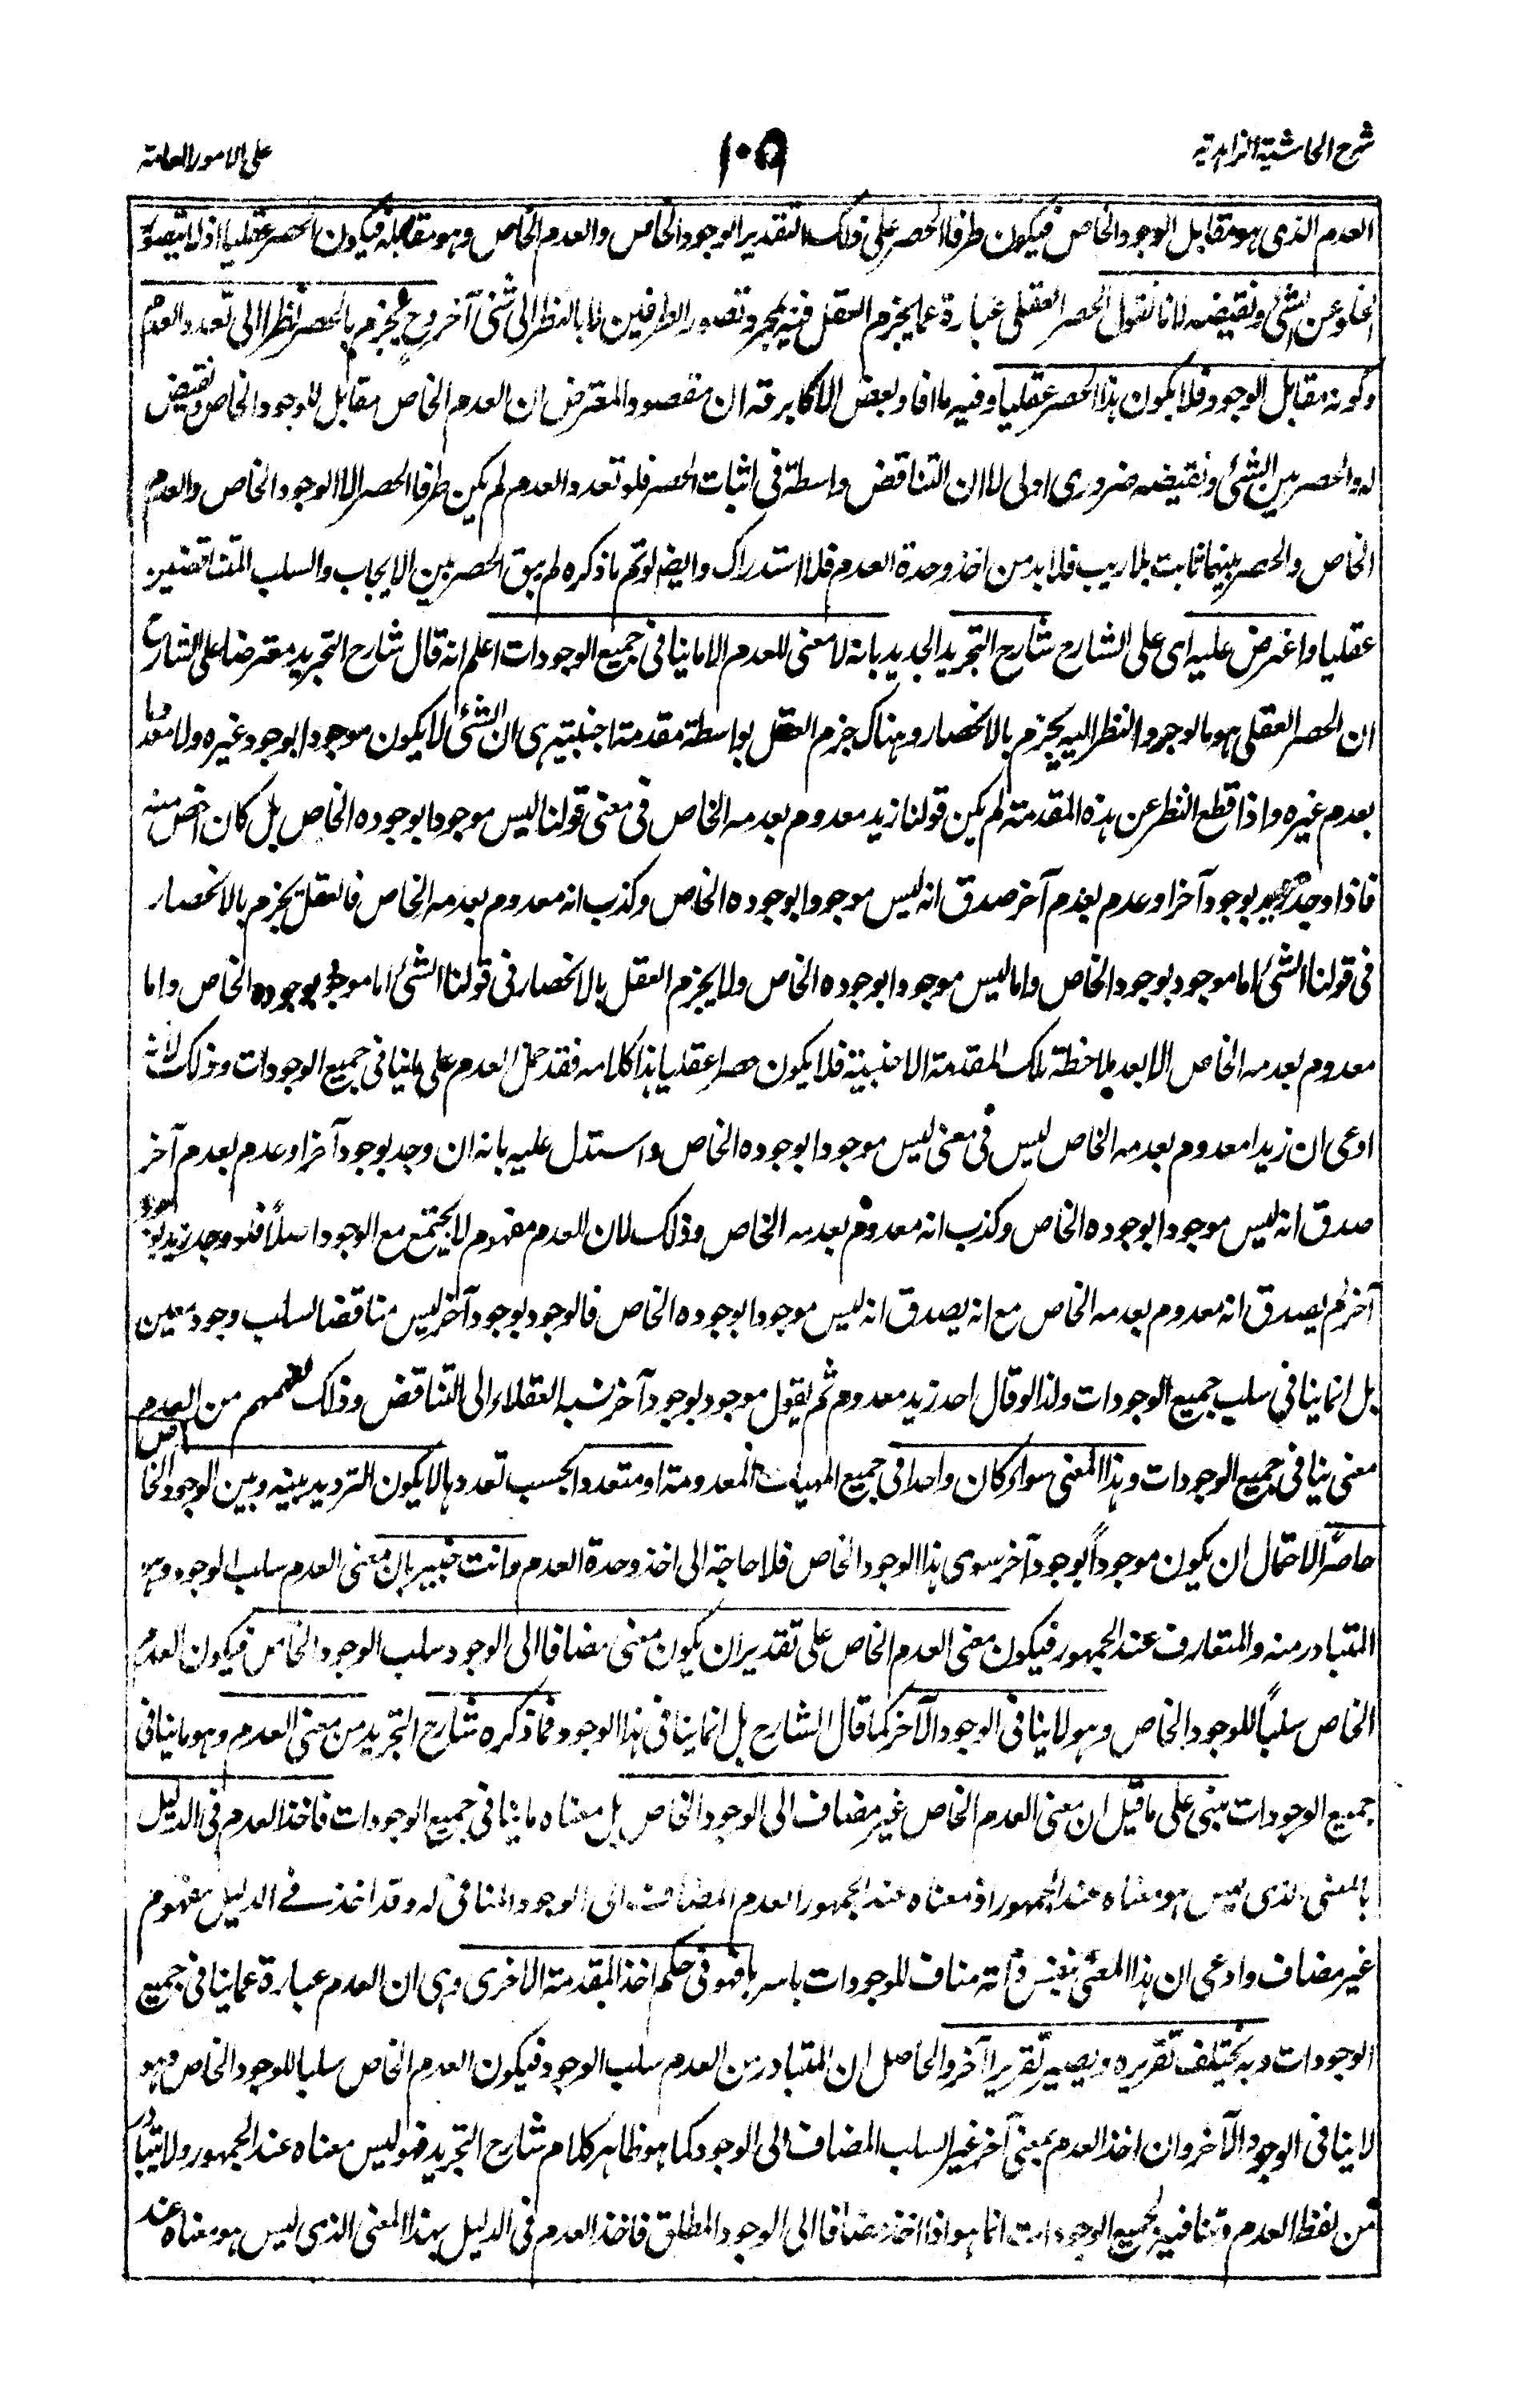 شرح الحاشية الزاهدية
١٠٥
على الامور العامة
العدم الذى هو مقابل الوجود الخاص فيكون طرفا الحصر على ذلك التقدير الوجود الخاص والعدم الخاص وهو مقابله فيكون الحصر عقليا اذ لا يتصور
الخلو عن الشئ ونقيضه لانا نقول الحصر العقلى عبارة عما يجزم العقل فيه بمجرد تصور الطرفين لا بالنظر الى شئ آخر وح يجزم بالحصر نظرا الى تعدد العدم
وكونه مقابل الوجود فلا يكون هذا الحصر عقليا وفيه ما افاد بعض الاكابر قه ان مقصود المعترض ان العدم الخاص مقابل للوجود الخاص ونقيض
له والحصر بين الشئ ونقيضه ضرورى اولى لا ان التناقض واسطة فى اثبات الحصر فلو تعدد العدم لم يكن طرفا الحصر الا الوجود الخاص والعدم
الخاص والحصر بينهما ثابت بلا ريب فلا بد من اخذ وحدة العدم فلا استدراك وايضا لو تم ما ذكره لم يبق الحصر بين الايجاب والسلب المتناقضين
عقليا واعترض عليه اى على الشارح شارح التجريد الجديد بانه لا معنى للعدم الا ما ينافى جميع الوجودات اعلم انه قال شارح التجريد معترضا على الشارح
ان الحصر العقلى هو ما لوجرد النظر اليه يجزم بالانحصار وهناك جزم العقل بواسطة مقدمة اجنبية هى ان الشئ لا يكون موجودا بوجود غيره ولا معدوما
بعدم غيره واذا قطع النظر عن هذه المقدمة لم يكن قولنا زيد معدوم بعدمه الخاص فى معنى قولنا ليس موجودا بوجوده الخاص بل كان اخص منه
فاذا وجد زيد بوجود آخر او عدم بعدم آخر صدق انه ليس موجودا بوجوده الخاص وكذب انه معدوم بعدمه الخاص فالعقل يجزم بالانحصار
فى قولنا الشئ اما موجود بوجود الخاص واما ليس موجودا بوجوده الخاص ولا يجزم العقل بالانحصار فى قولنا الشئ اما موجود بوجوده الخاص واما
معدوم بعدمه الخاص الا بعد ملاحظة تلك المقدمة الاجنبية فلا يكون حصرا عقليا هذا كلامه فقد حمل العدم على ما ينافى جميع الوجودات وذلك لانه
ادعى ان زيدا معدوم بعدمه الخاص ليس فى معنى ليس موجودا بوجوده الخاص واستدل عليه بانه ان وجد بوجود آخر او عدم بعدم آخر
صدق انه ليس موجودا بوجوده الخاص وكذب انه معدوم بعدمه الخاص وذلك لان العدم مفهوم لا يجتمع مع الوجود اصلاً فلو وجد زيد بوجود
آخر لم يصدق انه معدوم بعدمه الخاص مع انه يصدق انه ليس موجودا بوجوده الخاص فالوجود بوجود آخر ليس مناقضا لسلب وجود معين
بل انما ينافى سلب جميع الوجودات ولذا لو قال احد زيد معدوم ثم يقول موجود بوجود آخر نسبه العقلاء الى التناقض وذلك لفهمهم من العدم
معنى ينافى جميع الوجودات وهذا المعنى سواء كان واحدا فى جميع المهيات المعدومة او متعدد الحسب تعددها لا يكون الترديد بينه وبين الوجود الخاص
حاصرًا لاحتمال ان يكون موجوداً بوجود آخر سوى هذا الوجود الخاص فلا حاجة الى اخذ وحدة العدم وانت خبير بان معنى العدم سلب الوجود وهو
المتبادر منه والمتعارف عند الجمهور فيكون معنى العدم الخاص على تقدير ان يكون معنى مضافا الى الوجود سلب الوجود الخاص فيكون العدم
الخاص سلباً للوجود الخاص وهو لا ينافى الوجود الآخر كما قال الشارح بل انما ينافى هذا الوجود فما ذكره شارح التجريد من معنى العدم وهو ما ينافى
جميع الوجودات مبنى على ما قيل ان معنى العدم الخاص غير مضاف الى الوجود الخاص بل معناه ما ينافى جميع الوجودات فاخذ العدم فى الدليل
بالمعنى الذى ليس هو معناه عند الجمهور اذ معناه عند الجمهور العدم المضاف الى الوجود المنافى له وقد اخذ فى الدليل مفهوم
غير مضاف وادعى ان هذا المعنى بنفس ذاته مناف للوجودات باسرها فهو فى حكم اخذ المقدمة الاخرى وهى ان العدم عبارة عما ينافى جميع
الوجودات وبه يختلف تقريره ويصير تقريرا آخر والحاصل ان المتبادر من العدم سلب الوجود فيكون العدم الخاص سلبا للوجود الخاص وهو
لا ينافى الوجود الآخر وان اخذ العدم بمعنى آخر غير السلب المضاف الى الوجود كما هو ظاهر كلام شارح التجريد فهو ليس معناه عند الجمهور ولا يتبادر
من لفظ العدم وتنافيه لجميع الوجودات انما هو اذا اخذ مضافا الى الوجود المطلق فاخذ العدم فى الدليل بهذا المعنى الذى ليس هو معناه عند